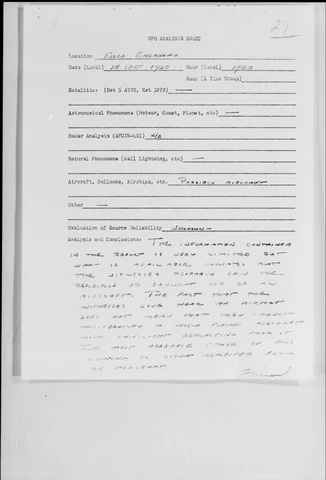 29
UFO ANALYSIS SHEET
Location Tulsa Oklahoma
Date (Local) 18 Sept 1960 Hour (Local) 1900
Hour (Z Time Group)
Satellite: (Det 5 AICE, Ext 3279)
Astronomical Phenomena (Meteor, Comet, Planet, etc)
Radar Analysis (AFCIN-4E1) N/A
Natural Phenomena (Ball Lightning, etc)
Aircraft, Balloons, Airships, etc. Possibly aircraft
Other
Evaluation of Source Reliability Unknown
Analysis and Conclusions: The information contained
in the report is very limited but
what is available indicates that
the witnesses probably saw the
reflection of sunlight off of an
aircraft. The fact that the
witnesses live near an airport
does not mean that they cannot
a high flying aircraft
with sunlight reflecting from it
The most probable cause of this
sighting is light reflected from
an aircraft.